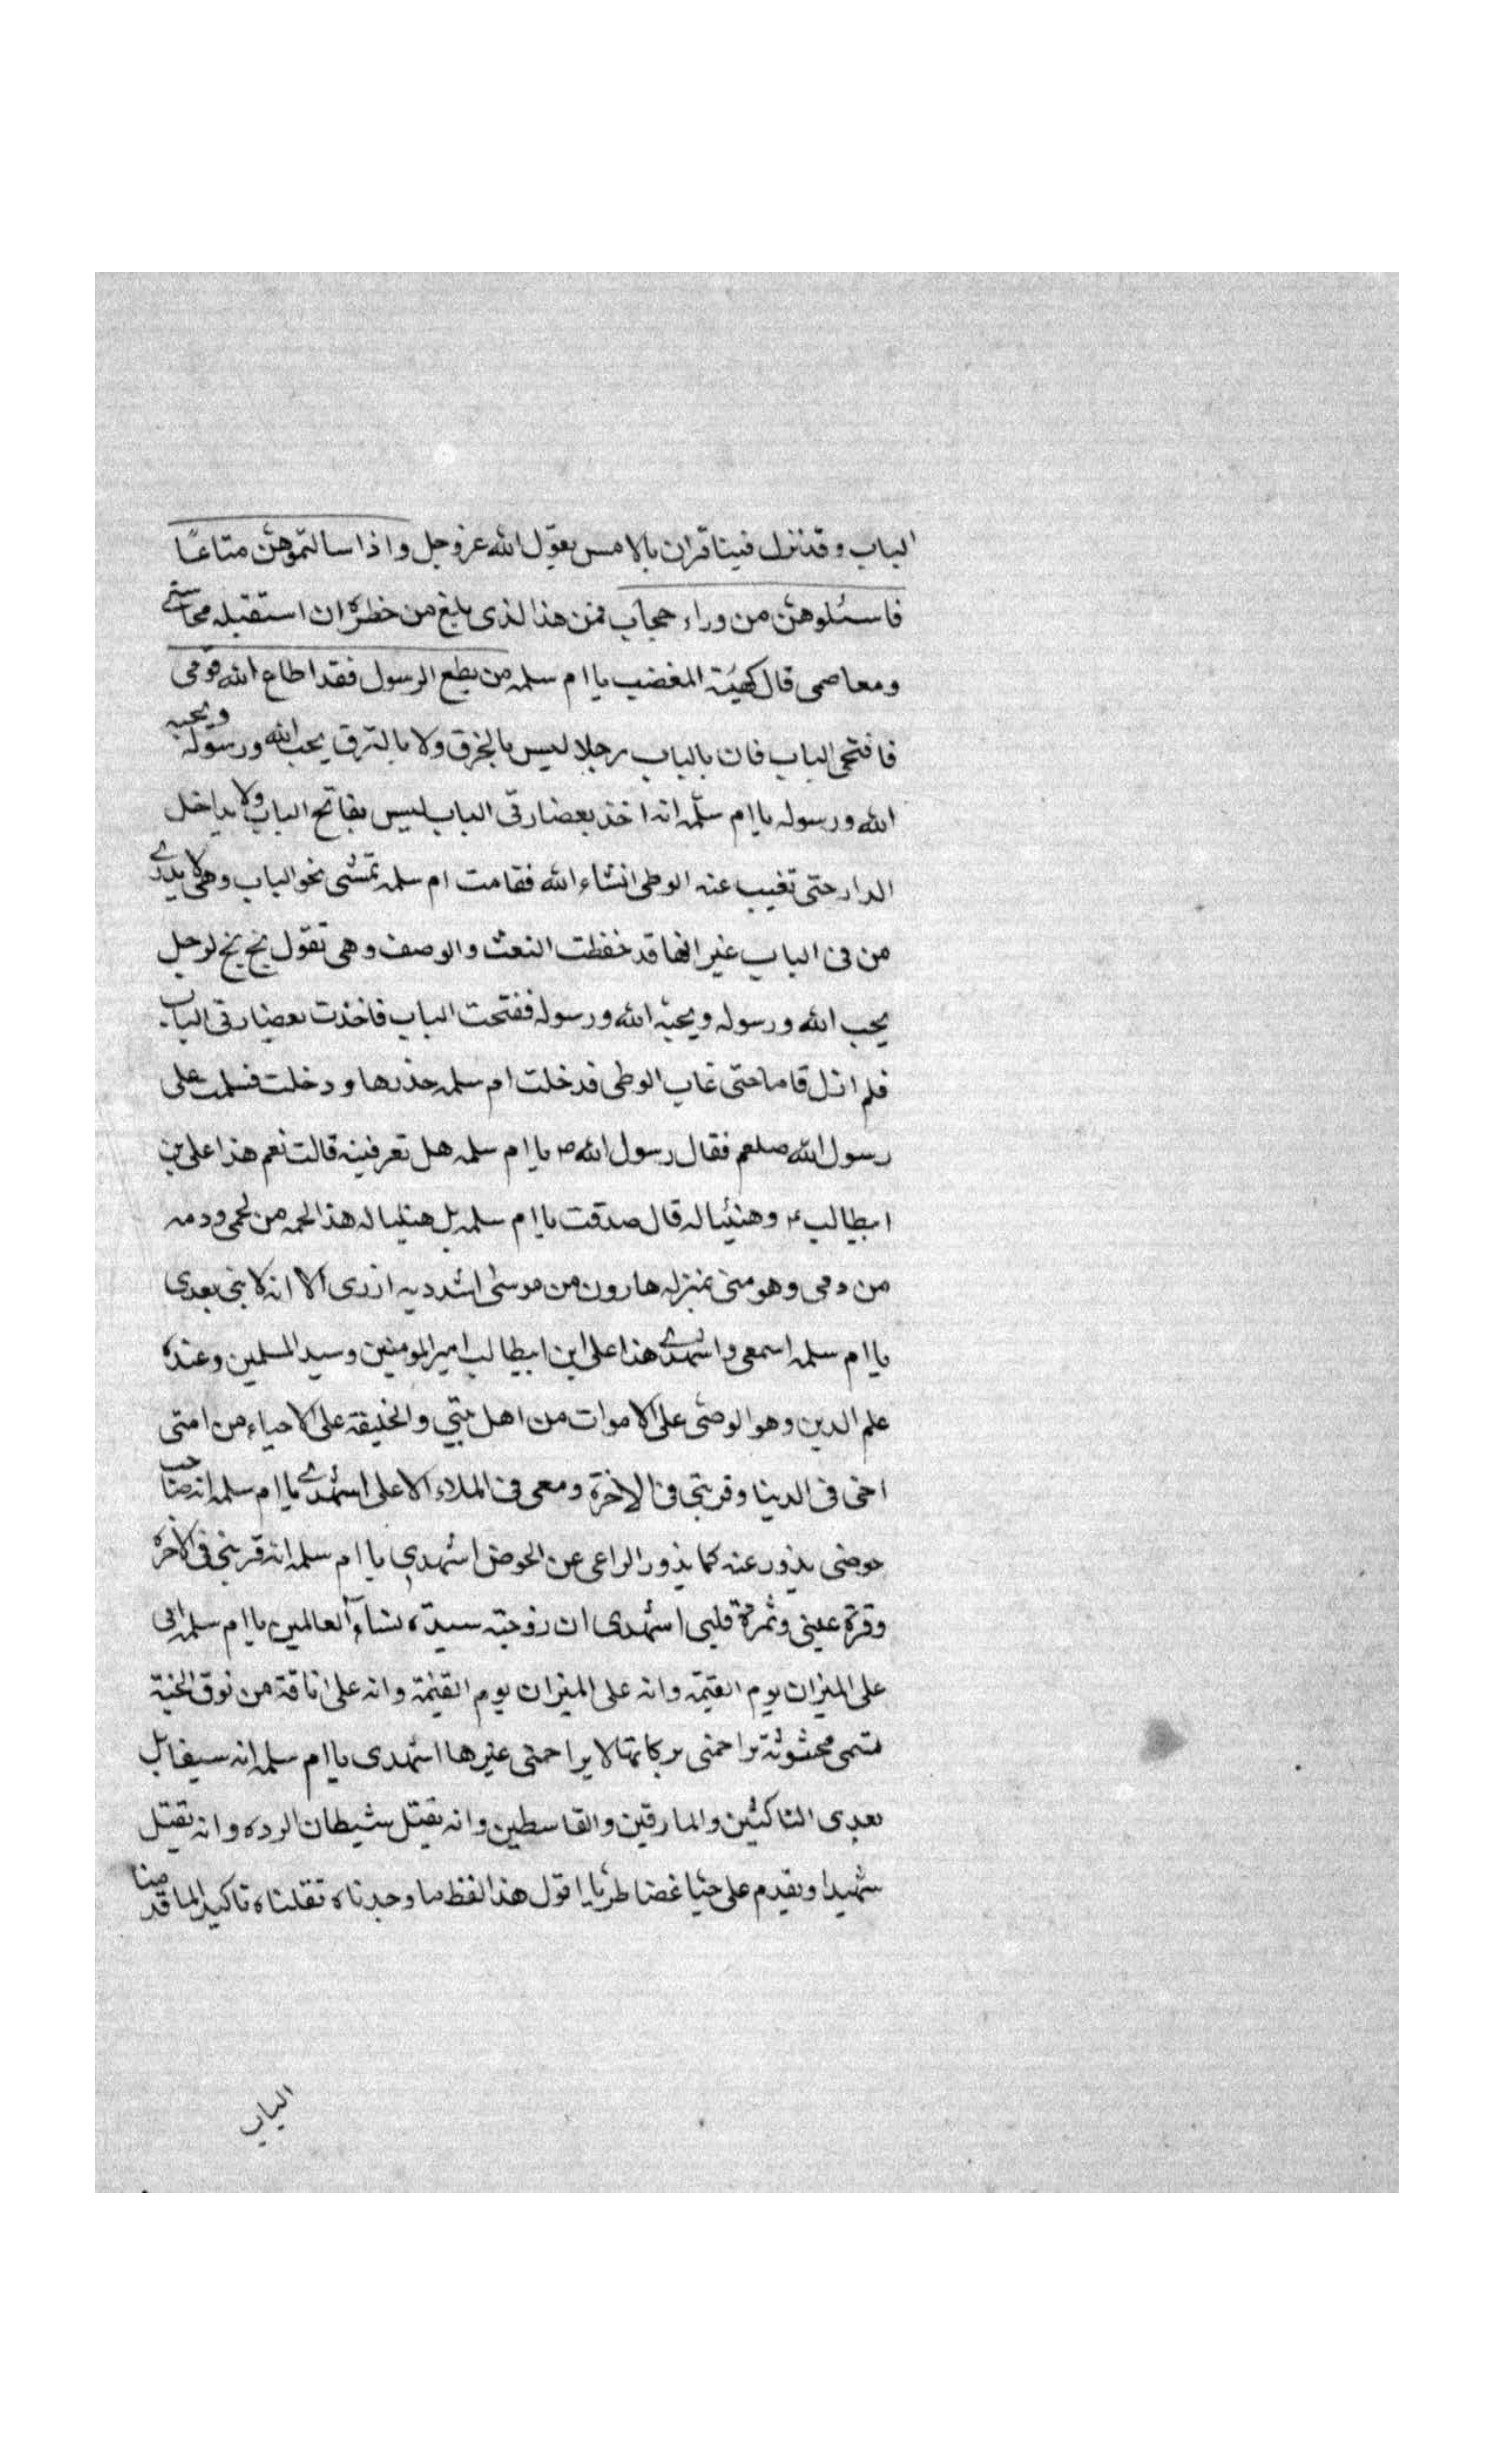 الباب وقد نزل فينا قران بالامس يقول الله عز وجل واذا سالتموهن متاعًا
فاسئلوهن من وراء حجاب فمن هذا الذى بلغ من خطره ان استقبله بمحاسنى
ومعاصمى قال كهيئة المغضب يا ام سلمه من يطع الرسول فقد اطاع الله قومى
فافتحى الباب فان بالباب رجلا ليس بالخرق ولا بالنزق يحب الله ورسوله ويحبه
الله ورسوله يا ام سلمه انه اخذ بعضادتى الباب ليس بفاتح الباب ولا بداخل
الدار حتى تغيب عنه الوطى انشاء الله فقامت ام سلمه تمشى نحو الباب وهى لا يدرى
من فى الباب غير انها قد حفظت النعت والوصف وهى تقول بخ بخ لرجل
يحب الله ورسوله ويحبه الله ورسوله ففتحت الباب فاخذت بعضادتى الباب
فلم ازل قاما حتى غاب الوطى فدخلت ام سلمه خدرها ودخلت فسلمت على
رسول الله صلعم فقال رسول الله ص يا ام سلمه هل تعرفينه قالت نعم هذا على بن
ابيطالب ع وهنئيا له قال صدقت يا ام سلمه بل هنئيا له هذا لحمه من لحمى ودمه
من دمى وهو منى بمنزله هارون من موسى اشدد به ازرى الا انه لا نبى بعدى
يا ام سلمه اسمعى واشهدى هذا على ابن ابيطالب امير المومنين وسيد المسلمين وعنده
علم الدين وهو الوصى على الاموات من اهل بيتى والخليفة على الاحياء من امتى
اخى فى الدنيا وقرينى فى الاخرة ومعى فى الملاء الاعلى اشهدى يا ام سلمه انه صاحب
حوضى يذود عنه كما يذود الراعى عن الحوض اشهدى يا ام سلمه انه قرينى فى الاخره
وقرة عينى وثمرة قلبى اشهدى ان زوجته سيدة نساء العالمين يا ام سلمه انى
على الميزان يوم القيمة وانه على الميزان يوم القيمة وانه على ناقة من نوق الجنة
تسمى محثوثة تزاحمنى بركابها لا يزاحمنى غيرها اشهدى يا ام سلمه انه سيقاتل
بعدى الناكثين والمارقين والقاسطين وانه يقتل شيطان الرده وانه يقتل
شهيدا ويقدم على حيا غضا طريا اقول هذا لفظ ما وجدناه نقلناه تاكيد لما قدمنا
الباب